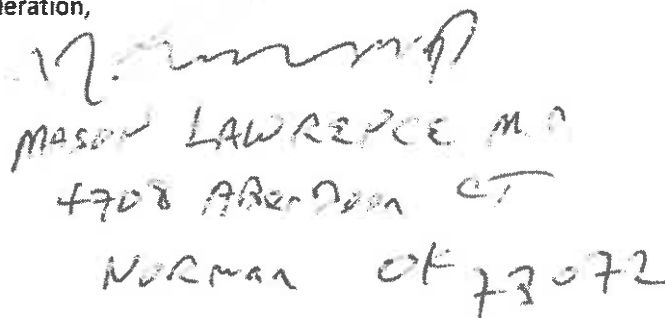 eration,
MASON LAWRENCE M.D
4708 ABerDeen CT
NORman OK 73072